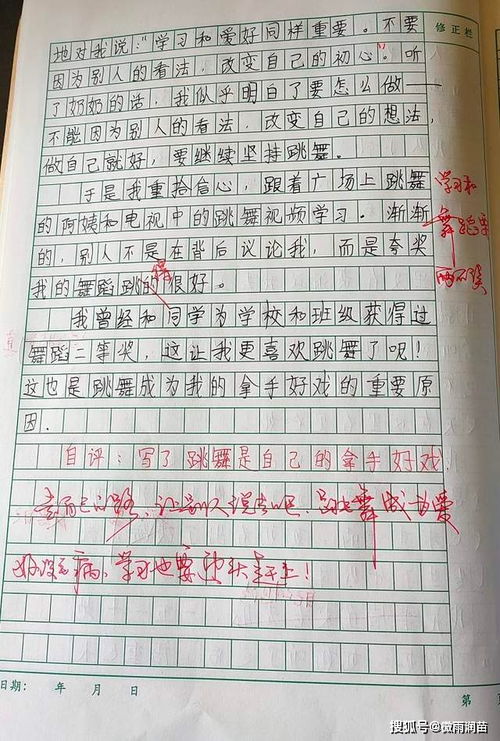 修正栏
地对我说:"学习和爱好同样重要。不要
因为别人的看法,改变自己的初心。"听
了奶奶的话,我似乎明白了要怎么做——
不能因为别人的看法,改变自己的想法,
做自己就好,要继续坚持跳舞。
于是我重拾信心,跟着广场上跳舞
的阿姨和电视中的跳舞视频学习。渐渐
的,别人不是在背后议论我,而是夸奖
我的舞蹈跳的很好。
得
学习和
舞蹈要
两不误
我曾经和同学为学校和班级获得过
舞蹈二等奖,这让我更喜欢跳舞了呢!
这也是跳舞成为我的拿手好戏的重要原
因.
自评:写了跳舞是自己的拿手好戏.
走自己的路,让别人说去吧,跳舞成为爱
好没毛病,学习也要迎头赶上!
日期: 年 月 日
第
搜狐号@微雨润苗